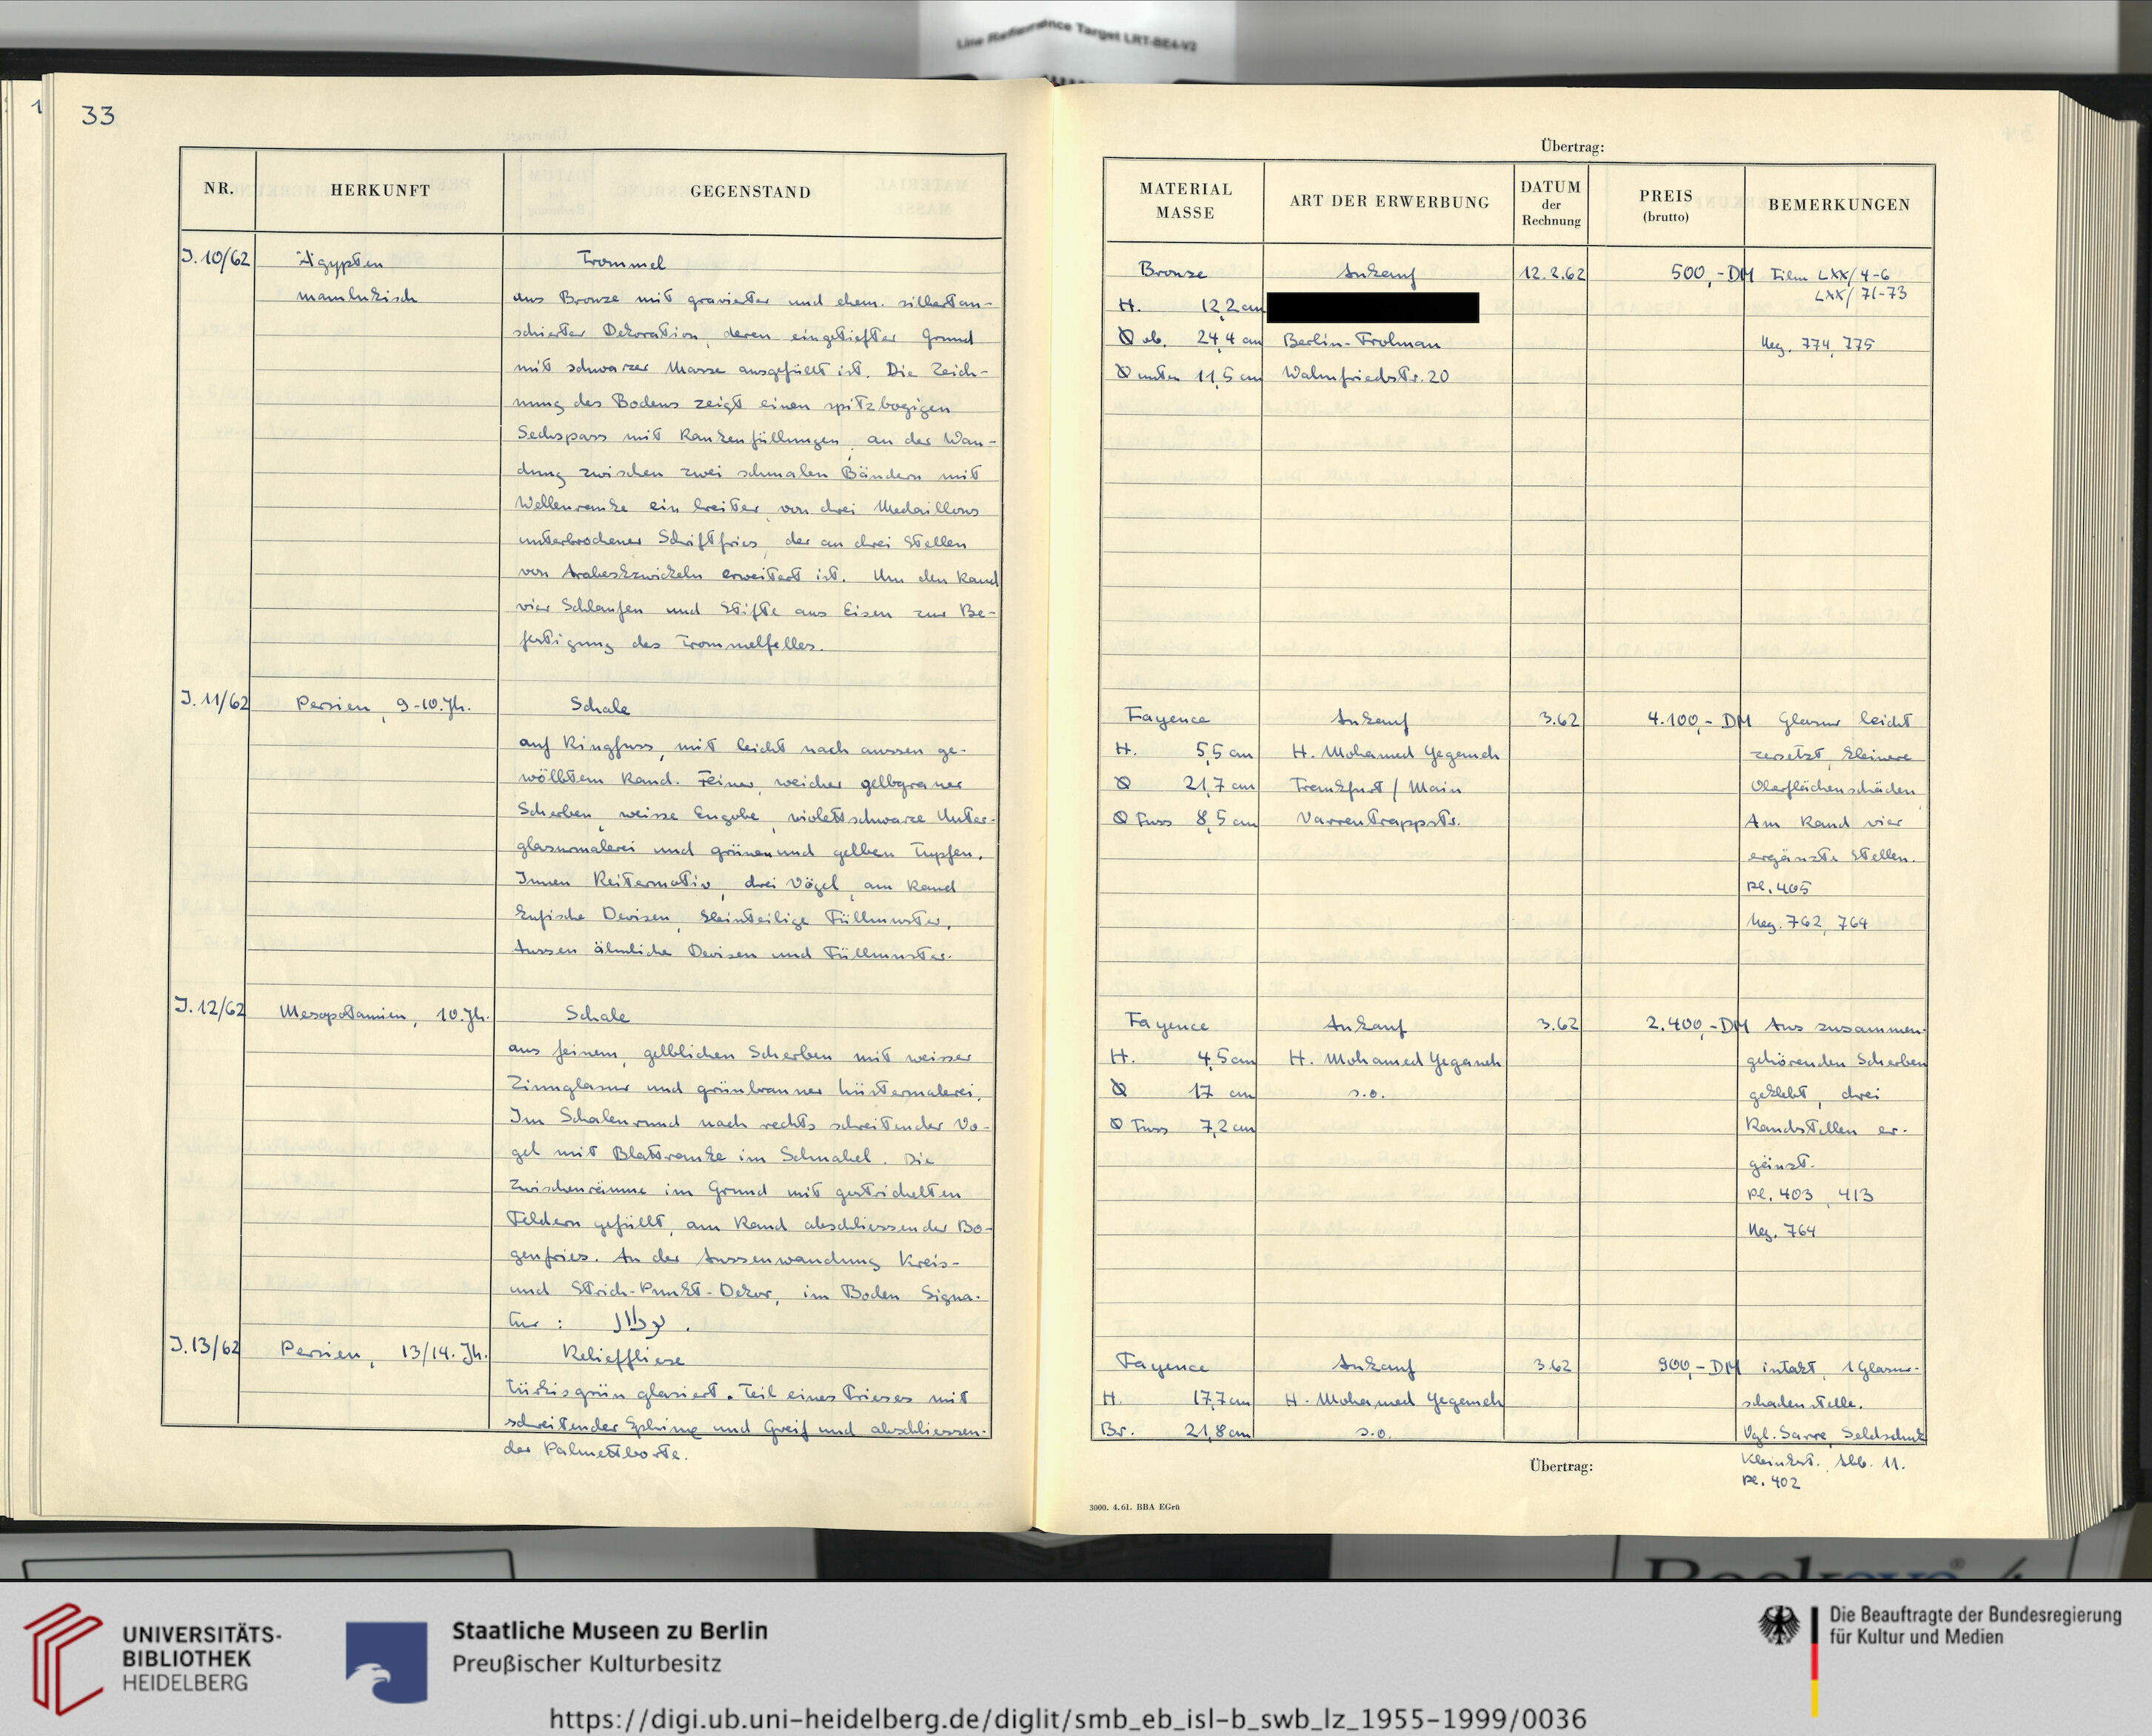 Line Reference Target LRT-BE4-V2
33
NR.
HERKUNFT
GEGENSTAND
J. 10/62
Ägypten
mamlukisch
Trommel
aus Bronze mit gravierter und ehem. silbertau-
schierter Dekoration, deren eingetiefter Grund
mit schwarzer Masse ausgefüllt ist. Die Zeich-
nung des Bodens zeigt einen spitzbogigen
Sechspass mit Rankenfüllungen, an der Wan-
dung zwischen zwei schmalen Bändern mit
Wellenranke ein breiter, von drei Medaillons
unterbrochener Schriftfries, der an drei Stellen
von Arabeskzwickeln erweitert ist. Um den Rand
vier Schlaufen und Stifte aus Eisen zur Be-
festigung des Trommelfelles.
J. 11/62
Persien, 9-10. Jh.
Schale
auf Ringfuss, mit leicht nach aussen ge-
wölbtem Rand. Feiner, weicher gelbgrauer
Scherben, weisse Engobe, violettschwarze Unter-
glasurmalerei und grünen und gelben Tupfen.
Innen Reitermotiv, drei Vögel, am Rand
kufische Devisen, kleinteilige Füllmuster.
Aussen ähnliche Devisen und Füllmuster.
J. 12/62
Mesopotamien, 10. Jh.
Schale
aus feinem, gelblichen Scherben mit weisser
Zinnglasur und grünbrauner Lüstermalerei.
Im Schalenrund nach rechts schreitender Vo-
gel mit Blattranke im Schnabel. Die
Zwischenräume im Grund mit gestrichelten
Feldern gefüllt, am Rand abschliessender Bo-
genfries. An der Aussenwandung Kreis-
und Strich-Punkt-Dekor, im Boden Signa-
tur :
J. 13/62
Persien, 13/14. Jh.
Relieffliese
türkisgrün glasiert. Teil eines Frieses mit
schreitender Sphinx und Greif und abschliessen-
der Palmettborte.
Übertrag:
MATERIAL
MASSE
ART DER ERWERBUNG
DATUM
der
Rechnung
PREIS
(brutto)
BEMERKUNGEN
Bronze
H. 12,2 cm
Ø ob. 24,4 cm
Ø unten 11,5 cm
Ankauf
Berlin-Frohnau
Walmfriedstr. 20
12.2.62
500,- DM
Film LXX/4-6
LXX/71-73
Neg. 774, 775
Fayence
H. 5,5 cm
Ø 21,7 cm
Ø Fuss 8,5 cm
Ankauf
H. Mohamed Yeganeh
Frankfurt / Main
Varrentrappstr.
3.62
4.100,- DM
Glasur leicht
zersetzt, kleinere
Oberflächenschäden
Am Rand vier
ergänzte Stellen.
Pl. 405
Neg. 762, 764
Fayence
H. 4,5 cm
Ø 17 cm
Ø Fuss 7,2 cm
Ankauf
H. Mohamed Yeganeh
s.o.
3.62
2.400,- DM
Aus zusammen-
gehörenden Scherben
geklebt, drei
Randstellen er-
gänzt.
Pl. 403, 413
Neg. 764
Fayence
H. 17,7 cm
Br. 21,8 cm
Ankauf
H. Mohamed Yeganeh
s.o.
3.62
900,- DM
intakt, 1 Glasur-
schadenstelle.
Vgl. Sarre, Seldschuk
Kleinkst. Abb. 11.
Pl. 402
Übertrag:
3000. 4.61. BBA EGrü
UNIVERSITÄTS-
BIBLIOTHEK
HEIDELBERG
Staatliche Museen zu Berlin
Preußischer Kulturbesitz
Die Beauftragte der Bundesregierung
für Kultur und Medien
https://digi.ub.uni-heidelberg.de/diglit/smb_eb_isl-b_swb_lz_1955-1999/0036